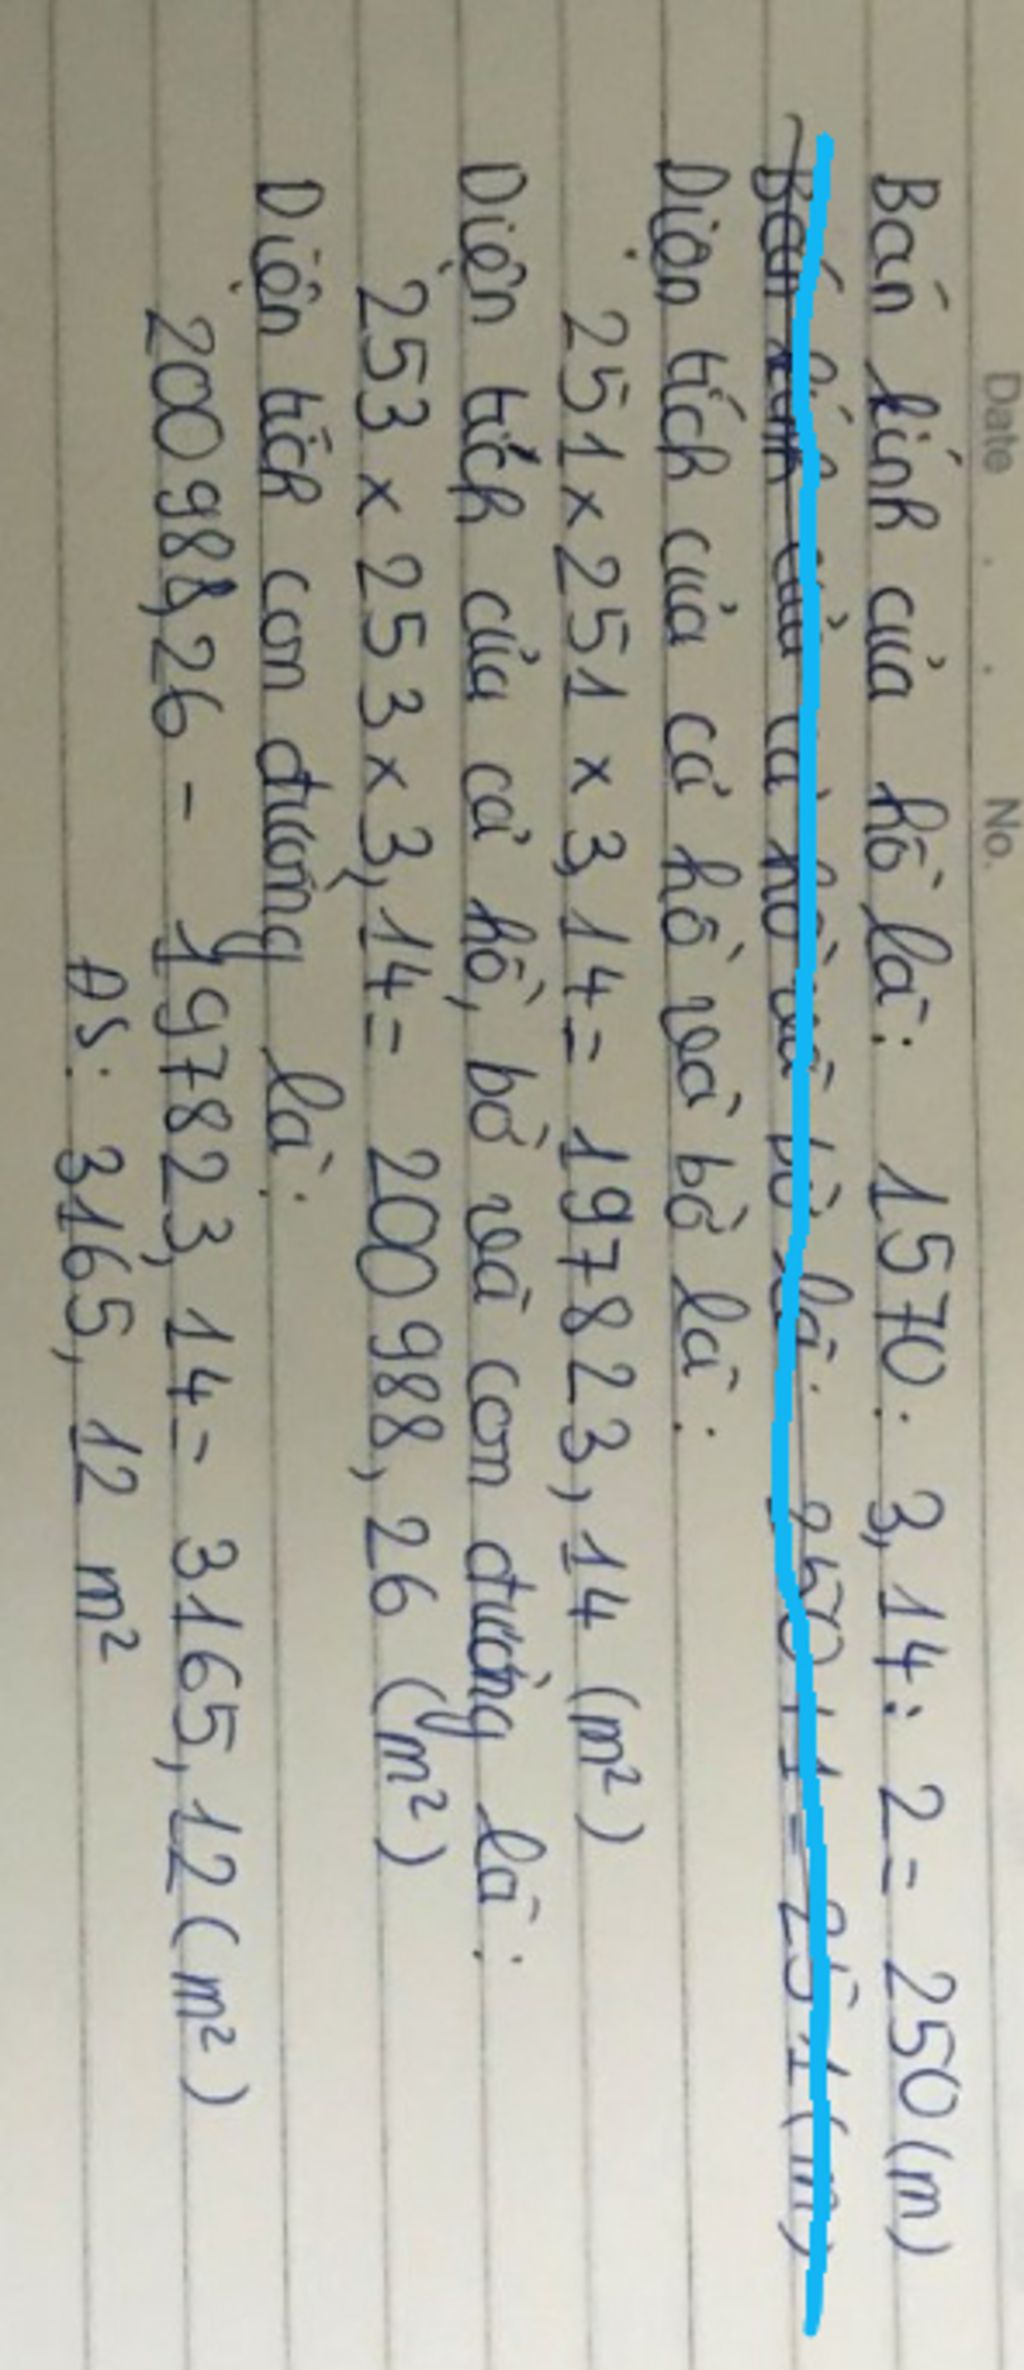 Date . . No.
Bán kính của hồ là: 1570 : 3,14 : 2 = 250 (m)
Bán kính của cả hồ và bờ là: 250 + 1 = 251 (m)
Diện tích của cả hồ và bờ là:
251 x 251 x 3,14 = 197823,14 (m²)
Diện tích của cả hồ, bờ và con đường là:
253 x 253 x 3,14 = 200988,26 (m²)
Diện tích con đường là:
200988,26 - 197823,14 = 3165,12 (m²)
ĐS: 3165,12 m²